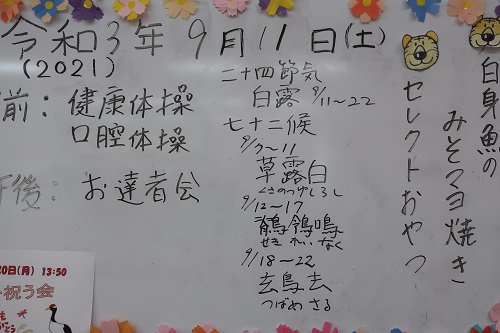 令和3年9月11日(土)
(2021)
前:健康体操
口腔体操
午後:お達者会
二十四節気
白露 9/11〜22
七十二候
9/7〜11
草露白
くさのつゆしろし
9/12〜17
鶺鴒鳴
せきれいなく
9/18〜22
玄鳥去
つばめさる
白身魚の
みそマヨ焼き
セレクトおやつ
20日(月) 13:50
祝う会